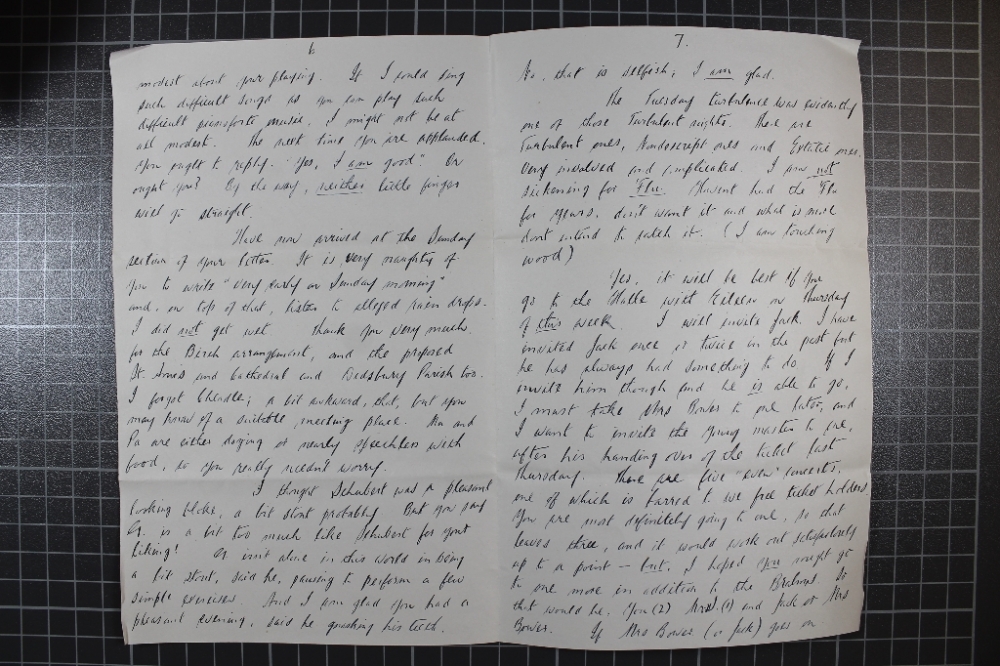 6
modest about your playing. If I could sing
such difficult songs as you can play such
difficult pianoforte music, I might not be at
all modest. The next time you are applauded,
you ought to reply. "Yes, I am good". Or
ought you? By the way, neither little finger
will go straight.
Have now arrived at the Sunday
section of your letter. It is very naughty of
you to write "very early on Sunday morning"
and, on top of that, listen to alleged rain drops.
I did not get wet. Thank you very much
for the Birch arrangement, and the proposed
St. Anns and Cathedral and Didsbury Parish too.
I forgot Cheadle; a bit awkward, that, but you
may know of a suitable meeting place. Ma and
Pa are either dozing or nearly speechless with
food, so you really needn't worry.
I thought Schubert was a pleasant
looking bloke, a bit stout probably. But you say
G. is a bit too much like Schubert for your
liking! G. isn't alone in this world in being
a bit stout, said he, pausing to perform a few
simple exercises. And I am glad you had a
pleasant evening, said he gnashing his teeth.
7.
No, that is selfish; I am glad.
The Tuesday turbulence was evidently
one of those Turbulent nights. There are
Turbulent ones, Nondescript ones and Extatic ones.
Very involved and complicated. I am not
sickening for Flu. Haven't had the Flu
for years, don't want it and what is more
don't intend to catch it. (I am touching
wood)
Yes, it will be best if you
go to the Halle with Eileen on Thursday
of this week. I will invite Jack. I have
invited Jack once or twice in the past but
he has always had something to do. If I
invite him though and he is able to go,
I must take Mrs Bower to one later, and
I want to invite the young master to one,
after his handing over of the ticket last
Thursday. There are five "even" concerts,
one of which is barred to we free ticket holders
You are most definitely going to one, so that
leaves three, and it would work out satisfactorily
up to a point – but, I hoped you might go
to one more in addition to the Brahms. So
that would be, You (2) Mrs B. (1) and Jack or Mrs
Bower. If Mrs Bower (or Jack) goes on